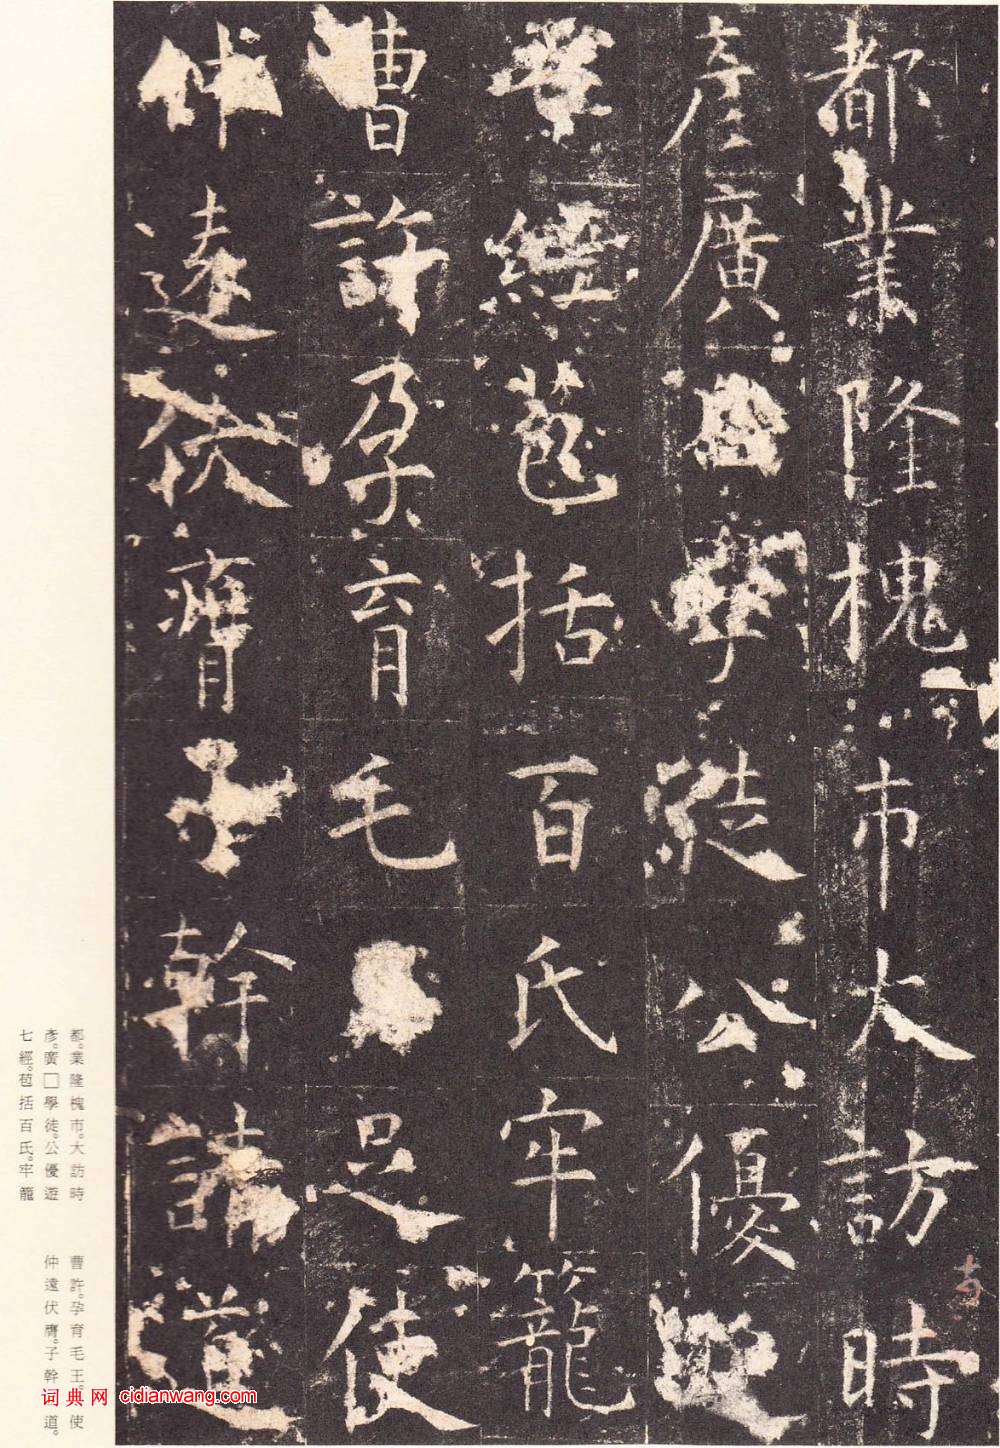 都業隆槐市大訪時
彥廣學結公優遊
七經苞括百氏牢籠
曹許孕育毛足使
仲遠伏膺子幹請道
都。業隆槐市。大訪時
彥。廣□學徒。公優遊
七經。苞括百氏。牢籠
曹許。孕育毛王。使
仲遠伏膺。子幹道。
词典网 cidianwang.com